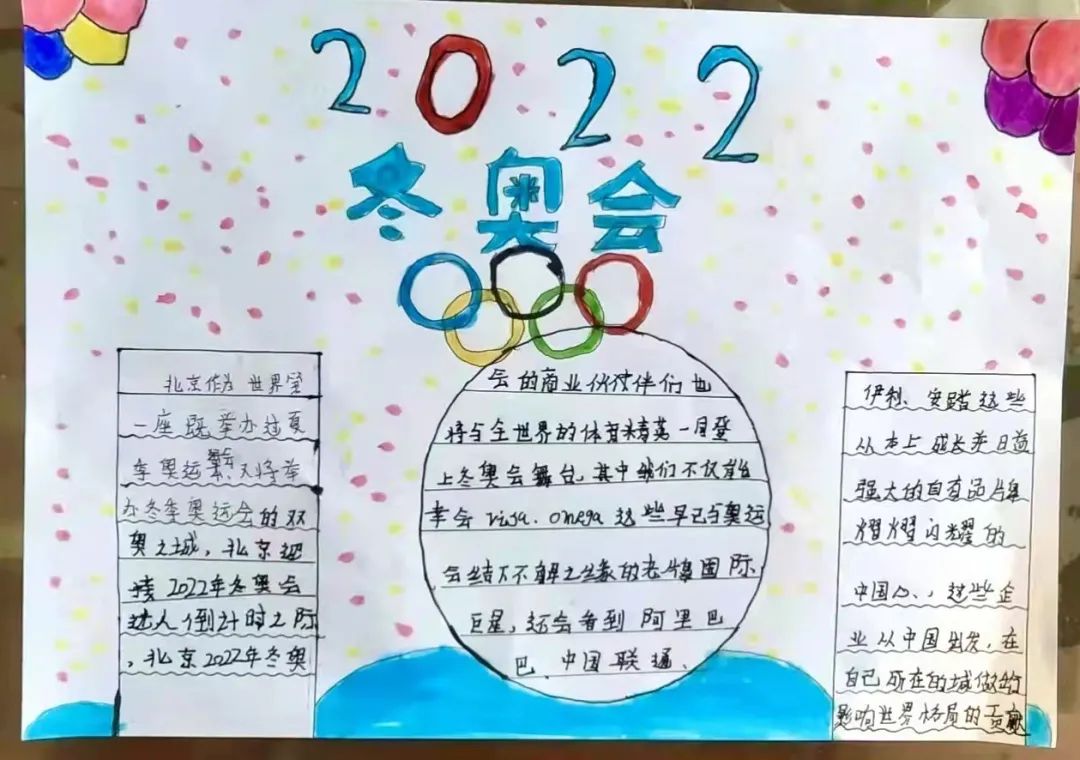 2022
冬奥会
北京作为世界第
一座既举办过夏
季奥运会又将举
办冬季奥运会的双
奥之城，北京迎
接2022年冬奥会
进入倒计时之际
，北京2022年冬奥
会的商业伙伴们也
将与全世界的体育精英一同登
上冬奥会舞台，其中我们不仅能
幸会visa、omega这些早已与奥运
会结下不解之缘的老牌国际
巨星，还会看到阿里巴
巴、中国联通、
伊利、安踏这些
从本土成长并日益
强大的自有品牌
熠熠闪耀的
中国心，这些企
业从中国出发，在
自己所在的域做的
影响世界格局的贡献